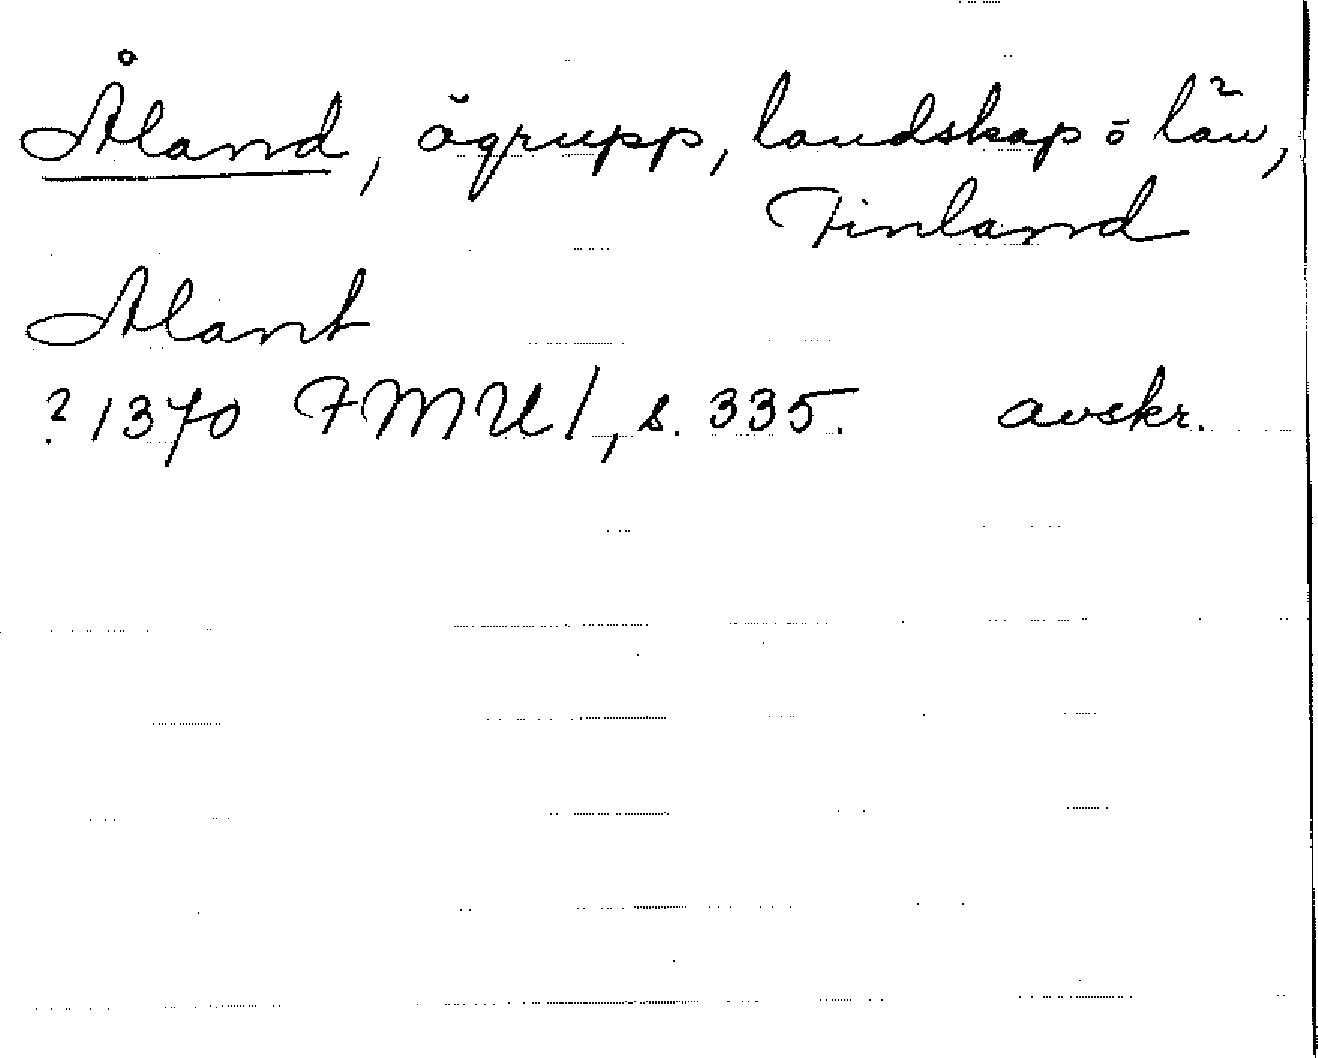 Åland, ögrupp, landskap o län,
Finland
Aland
? 1370 FMU 1, s. 335. avskr.